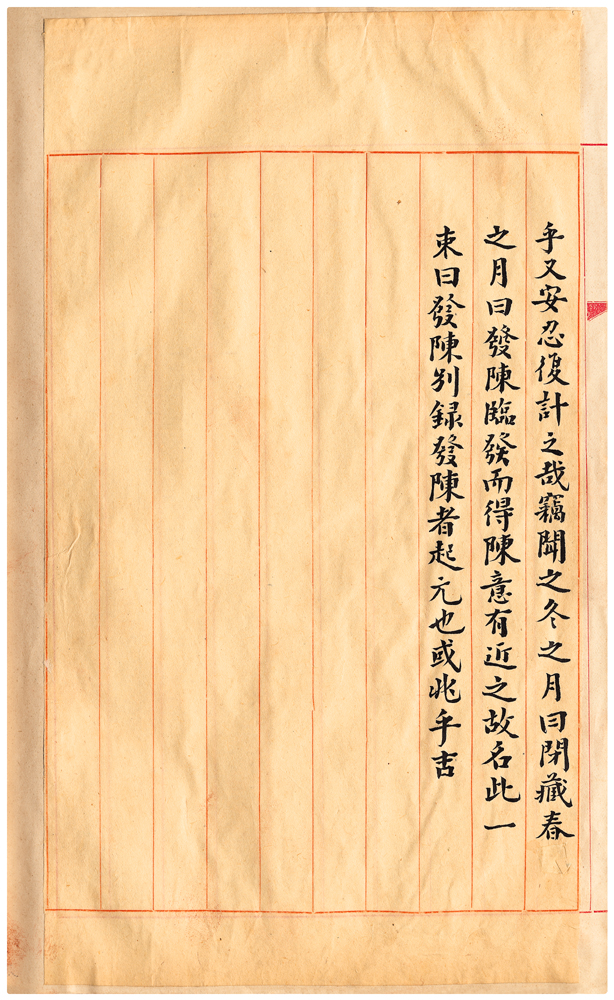 乎又安忍復計之哉竊聞之冬之月曰閉藏春
之月曰發陳臨發而得陳意有近之故名此一
束曰發陳別録發陳者起亢也或兆乎吉